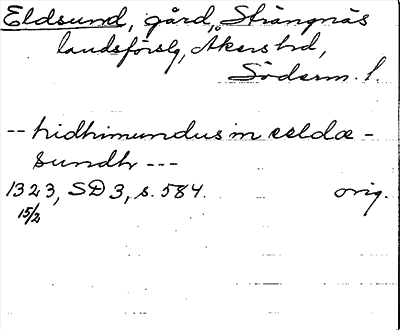 Eldsund, gård, Strängnäs
landsförsg, Åkers hd,
Söderm. l.
-- hidhimundus in eeldæ -
sundh ---
1323, SD 3, s. 584. orig.
15/2